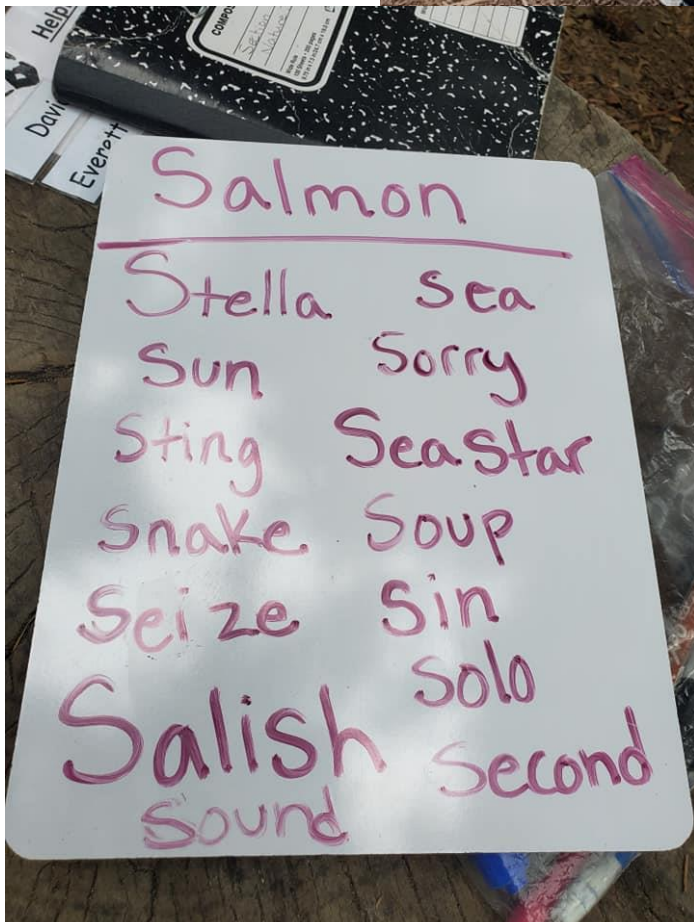 Help
Davi
Everett
COMPOS
Salmon
Stella
Sun
Sting
Snake
Seize
Salish
Sound
Sea
Sorry
Sea Star
Soup
Sin
Solo
Second